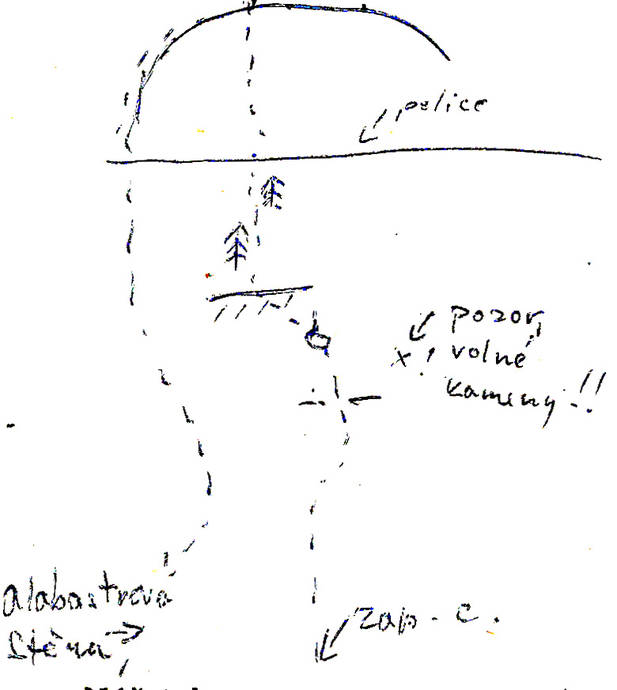 police
pozor,
x! volné
kameny!!
alabastrová
stěna,
zap. c.